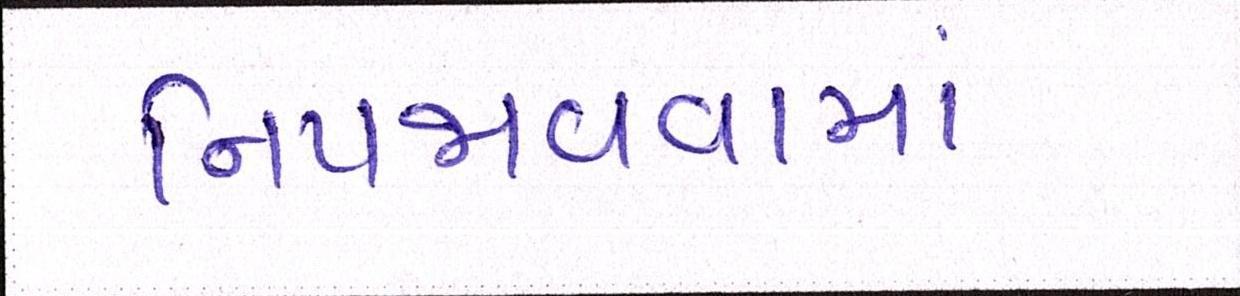 નિપજાવવામાં